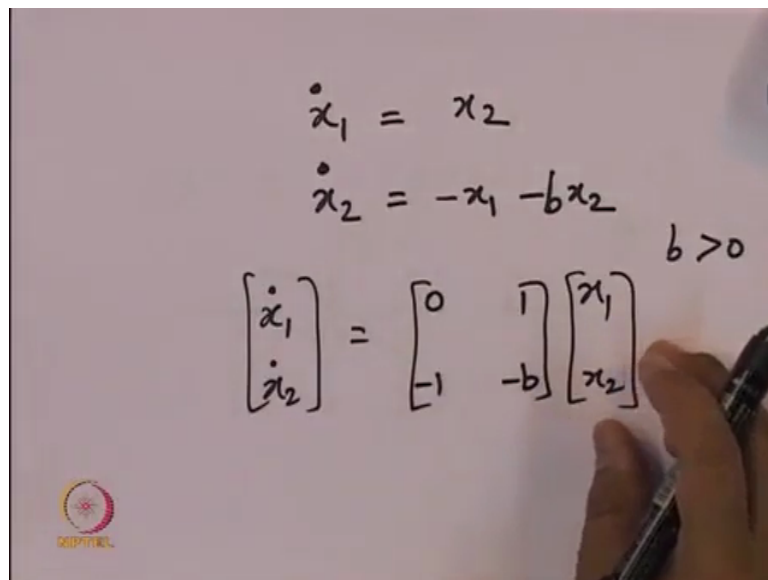 ẋ₁ = x₂
ẋ₂ = -x₁ -bx₂
b > 0
[ẋ₁ ẋ₂] = [0 1 -1 -b] [x₁ x₂]
NPTEL